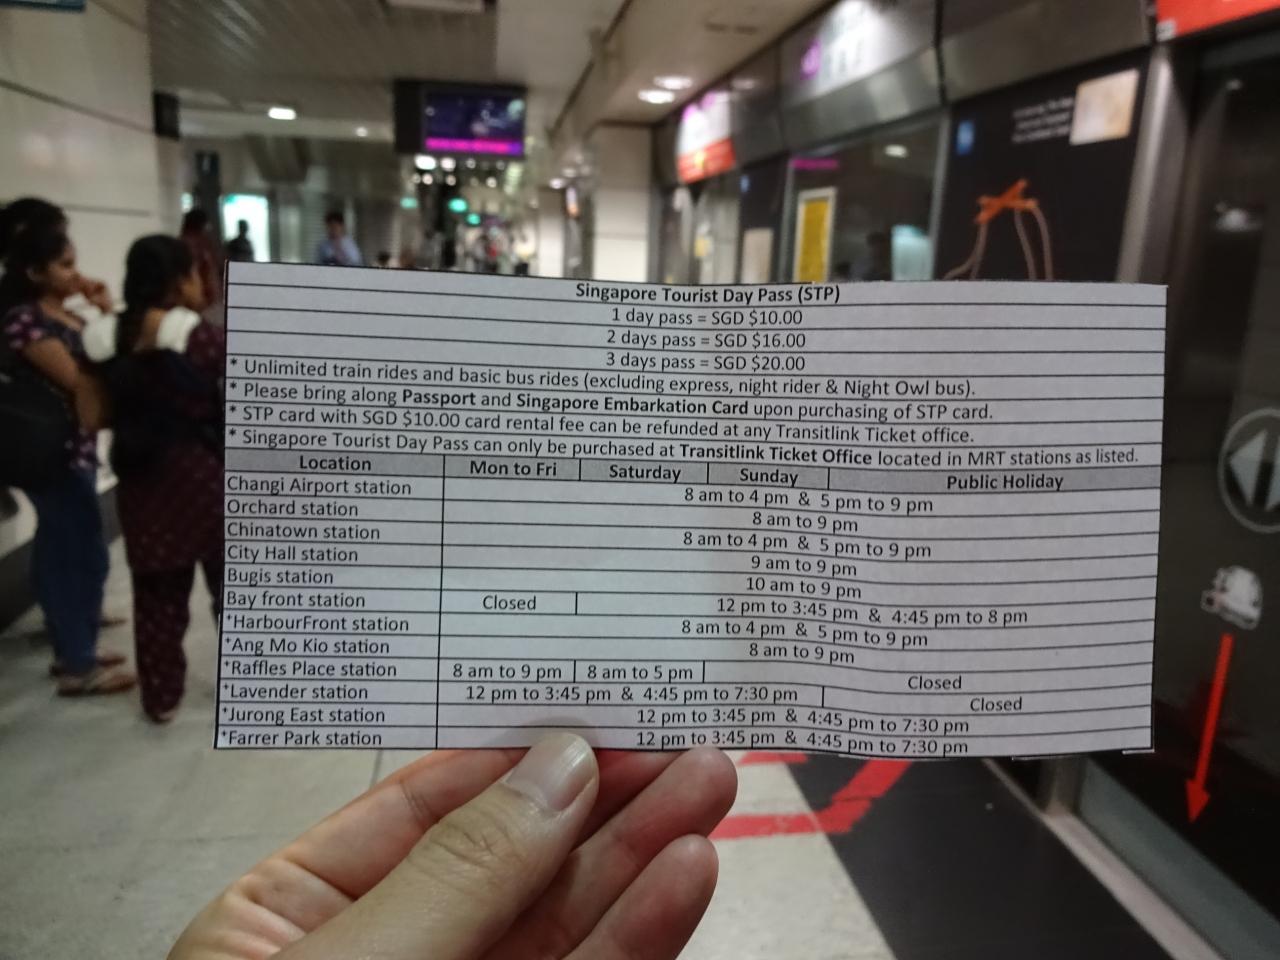 Singapore Tourist Day Pass (STP)
1 day pass = SGD $10.00
2 days pass = SGD $16.00
3 days pass = SGD $20.00
* Unlimited train rides and basic bus rides (excluding express, night rider & Night Owl bus).
* Please bring along Passport and Singapore Embarkation Card upon purchasing of STP card.
* STP card with SGD $10.00 card rental fee can be refunded at any Transitlink Ticket office.
* Singapore Tourist Day Pass can only be purchased at Transitlink Ticket Office located in MRT stations as listed.
Location Mon to Fri Saturday Sunday Public Holiday
Changi Airport station 8 am to 4 pm & 5 pm to 9 pm
Orchard station 8 am to 9 pm
Chinatown station 8 am to 4 pm & 5 pm to 9 pm
City Hall station 9 am to 9 pm
Bugis station 10 am to 9 pm
Bay front station Closed 12 pm to 3:45 pm & 4:45 pm to 8 pm
*HarbourFront station 8 am to 4 pm & 5 pm to 9 pm
*Ang Mo Kio station 8 am to 9 pm
*Raffles Place station 8 am to 9 pm 8 am to 5 pm Closed
*Lavender station 12 pm to 3:45 pm & 4:45 pm to 7:30 pm Closed
*Jurong East station 12 pm to 3:45 pm & 4:45 pm to 7:30 pm
*Farrer Park station 12 pm to 3:45 pm & 4:45 pm to 7:30 pm